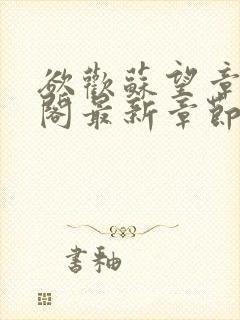 欲歡蘇望章
閣最新章節
書釉